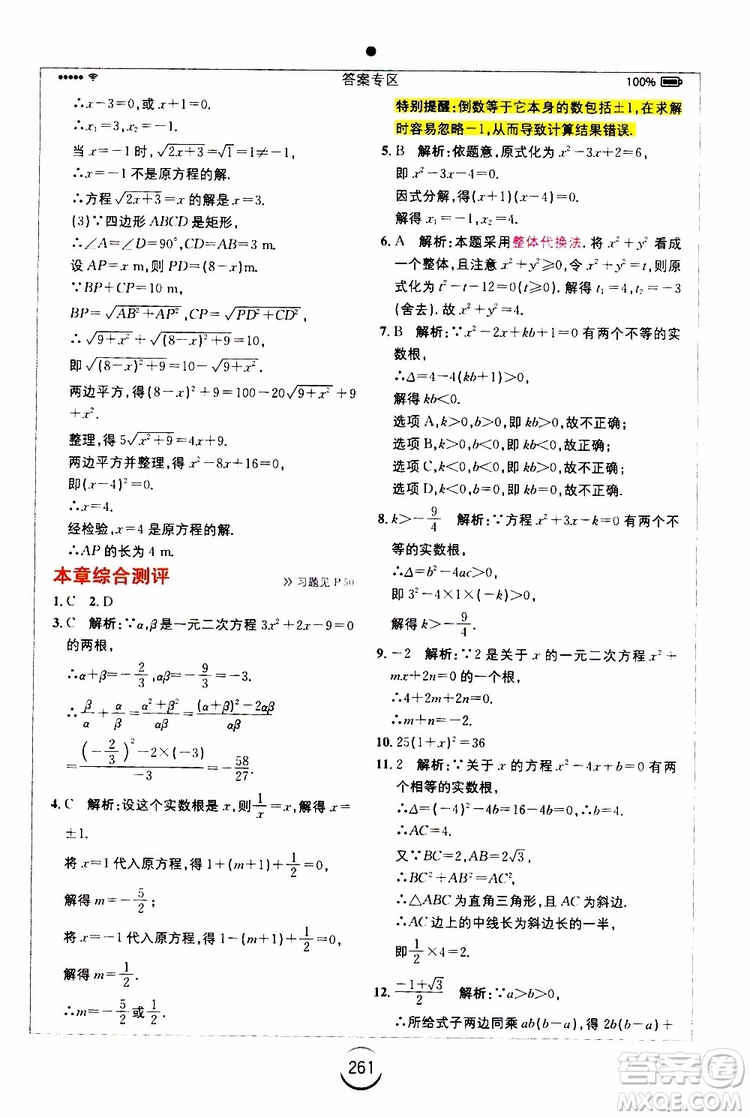 答案专区
100%
∴x-3=0,或x+1=0.
∴x₁=3,x₂=-1.
当x=-1时,√(2x+3)=√1=1≠-1,
∴x=-1不是原方程的解.
∴方程√(2x+3)=x的解是x=3.
(3)∵四边形ABCD是矩形,
∴∠A=∠D=90°,CD=AB=3 m.
设AP=x m,则PD=(8-x)m.
∵BP+CP=10 m,
BP=√(AB²+AP²),CP=√(PD²+CD²),
∴√(9+x²)+√((8-x)²+9)=10.
即√((8-x)²+9)=10-√(9+x²).
两边平方,得(8-x)²+9=100-20√(x²+9)+9
+x².
整理,得5√(x²+9)=4x+9.
两边平方并整理,得x²-8x+16=0,
即(x-4)²=0.
∴x=4.
经检验,x=4是原方程的解.
∴AP的长为4 m.
本章综合测评 >> 习题见P50
1. C 2. D
3. C 解析:∵α,β是一元二次方程3x²+2x-9=0
的两根,
∴α+β=-2/3,αβ=-9/3=-3.
∴β/α+α/β=(α²+β²)/αβ=((α+β)²-2αβ)/αβ
=((-2/3)²-2×(-3))/(-3)=-58/27.
4. C 解析:设这个实数根是x,则1/x=x,解得x=
±1.
将x=1代入原方程,得1+(m+1)+1/2=0,
解得m=-5/2;
将x=-1代入原方程,得1-(m+1)+1/2=0,
解得m=1/2.
∴m=-5/2或1/2.
特别提醒:倒数等于它本身的数包括±1,在求解
时容易忽略-1,从而导致计算结果错误.
5. B 解析:依题意,原式化为x²-3x+2=6,
即x²-3x-4=0.
因式分解,得(x+1)(x-4)=0.
解得x₁=-1,x₂=4.
6. A 解析:本题采用整体代换法.将x²+y²看成
一个整体,且x²+y²≥0,令x²+y²=t,则原
式化为t²-t-12=0(t≥0).解得t₁=4,t₂=-3
(舍去).故x²+y²=4.
7. B 解析:∵x²-2x+kb+1=0有两个不等的实
数根,
∴Δ=4-4(kb+1)>0,
解得kb<0.
选项A,k>0,b>0,即kb>0,故不正确;
选项B,k>0,b<0,即kb<0,故正确;
选项C,k<0,b<0,即kb>0,故不正确;
选项D,k<0,b=0,即kb=0,故不正确.
8. k>-9/4 解析:∵方程x²+3x-k=0有两个不
等的实数根,
∴Δ=b²-4ac>0,
即3²-4×1×(-k)>0,
解得k>-9/4.
9. -2 解析:∵2是关于x的一元二次方程x²+
mx+2n=0的一个根,
∴4+2m+2n=0,
∴m+n=-2.
10. 25(1+x)²=36
11. 2 解析:∵关于x的方程x²-4x+b=0有两
个相等的实数根,
∴Δ=(-4)²-4b=16-4b=0,
∴AC=4.
又∵BC=2,AB=2√3,
∴BC²+AB²=AC²,
∴△ABC为直角三角形,且AC为斜边.
∴AC边上的中线长为斜边长的一半,
即1/2×4=2.
12. (-1+√3)/2 解析:∵a>b>0,
∴所给式子两边同乘ab(b-a),得2b(b-a)+
261
答案圈
MXQE.COM